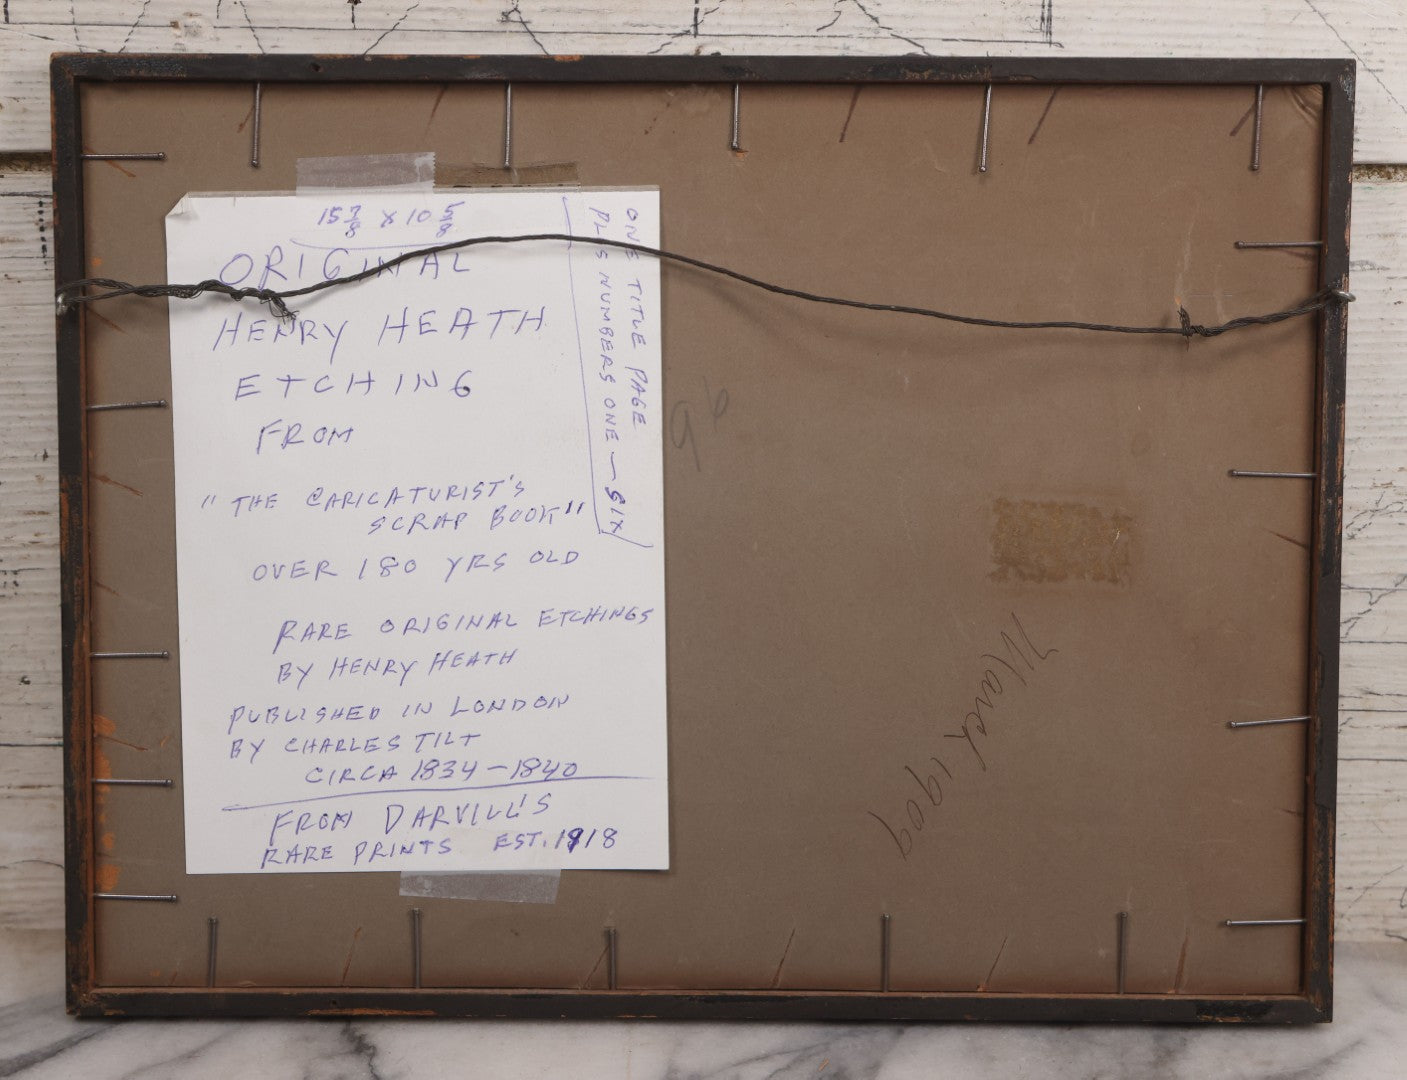 15 7/8 x 10 5/8
ORIGINAL
HENRY HEATH
ETCHING
FROM
"THE CARICATURIST'S
SCRAP BOOK"
OVER 180 YRS OLD
RARE ORIGINAL ETCHINGS
BY HENRY HEATH
PUBLISHED IN LONDON
BY CHARLES TILT
CIRCA 1834-1840
FROM DARVILL'S
RARE PRINTS EST. 1918
ONE TITLE PAGE
PLS NUMBERS ONE - SIX
96
March 1909